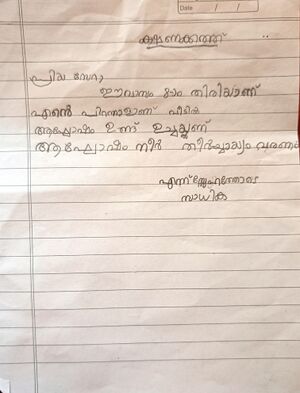 Date / /
ക്ഷണക്കത്ത്
പ്രിയ സേറ,
ഈ മാസം 8ാം തിയതിയാണ്
എന്റെ പിറന്നാളാണ്
ആഘോഷം ഉണ്ട് ഉച്ചയ്ക്കാണ്
ആഘോഷം നീ തീർച്ചയായും വരണം
എന്ന് സ്നേഹത്തോടെ
സാധിക